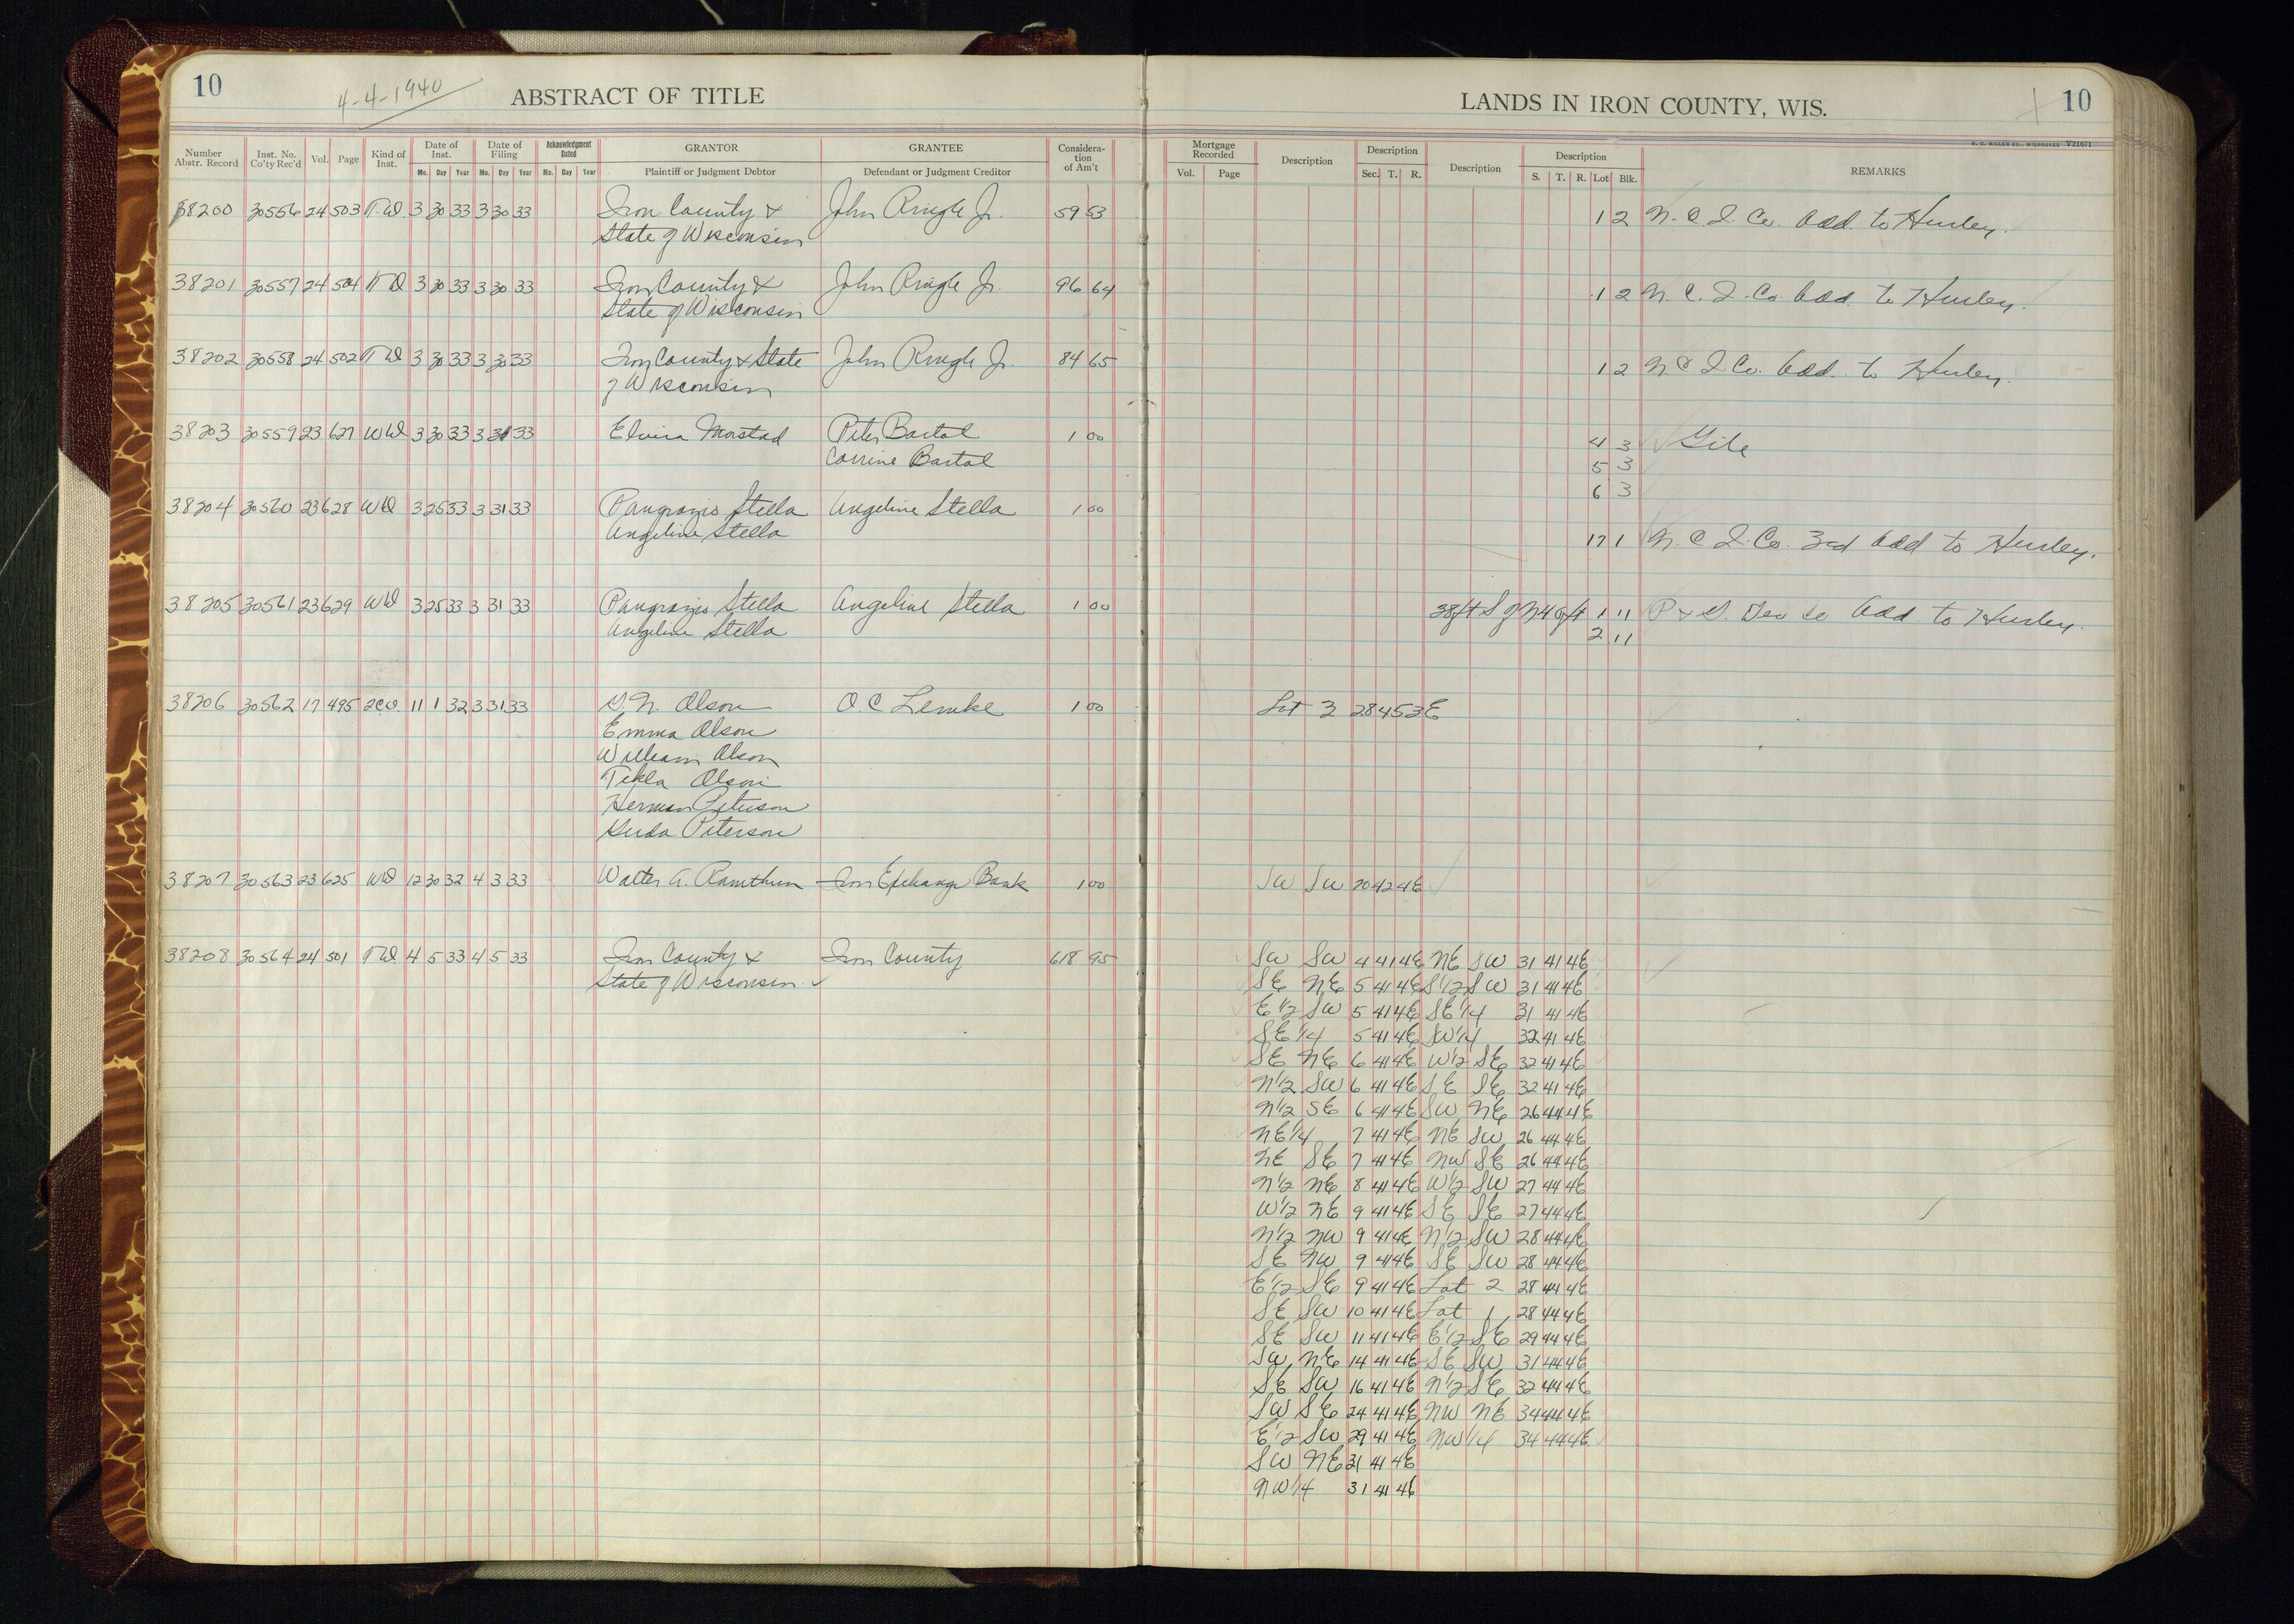 10
4-4-1940
ABSTRACT OF TITLE
LANDS IN IRON COUNTY, WIS.
10
H. C. MILLER CO., MILWAUKEE Y21671
Number Abstr. Record Inst. No. Co'ty Rec'd Vol. Page Kind of Inst. Date of Inst. Mo. Day Year Date of Filing Mo. Day Year Acknowledgment Dated Mo. Day Year GRANTOR Plaintiff or Judgment Debtor GRANTEE Defendant or Judgment Creditor Considera-tion of Am't
Mortgage Recorded Vol. Page Description Description Sec. T. R. Description Description S. T. R. Lot Blk. REMARKS
38200 30556 24 503 T.D 3 30 33 3 30 33 Iron County & John Ringle Jr. 59 53 1 2 N. C. I. Co. Add. to Hurley.
State of Wisconsin
38201 30557 24 504 T D 3 30 33 3 30 33 Iron County & John Ringle Jr. 96 64 1 2 N. C. I. Co. Add. to Hurley.
State of Wisconsin
38202 30558 24 502 T D 3 30 33 3 30 33 Iron County & State John Ringle Jr. 84 65 1 2 N C I Co. Add. to Hurley.
of Wisconsin
38203 30559 23 627 W D 3 30 33 3 31 33 Elvira Morstad Peter Bartol 1 00 4 3 Gile
Corrine Bartol 5 3
6 3
38204 30560 23 628 W D 3 25 33 3 31 33 Pangrazio Stella Angeline Stella 1 00
Angeline Stella 17 1 N. C. I. Co. 3rd Add to Hurley.
38205 30561 23 629 W D 3 25 33 3 31 33 Pangrazio Stella Angeline Stella 1 00 38ft S of N 40ft 1 11 P & G. Dev Co Add. to Hurley.
Angeline Stella 2 11
38206 30562 17 495 2CD. 11 1 32 3 31 33 G. N. Olson O. C Lemke 1 00 Lot 3 28 45 3E
Emma Olson
William Olson
Tekla Olson
Herman Peterson
Gerda Peterson
38207 30563 23 625 WD 12 30 32 4 3 33 Walter A. Ramthum Iron Exchange Bank 1 00 SW SW 20 42 4E
38208 30564 24 501 T D 4 5 33 4 5 33 Iron County & Iron County 618 95 SW SW 4 41 4E NE SW 31 41 4E
State of Wisconsin. SE NE 5 41 4E S 1/2 SW 31 41 4E
E 1/2 SW 5 41 4E SE 1/4 31 41 4E
SE 1/4 5 41 4E SW 1/4 32 41 4E
SE NE 6 41 4E W 1/2 SE 32 41 4E
N 1/2 SW 6 41 4E SE SE 32 41 4E
N 1/2 SE 6 41 4E SW NE 26 44 4E
NE 1/4 7 41 4E NE SW 26 44 4E
NE SE 7 41 4E NW SE 26 44 4E
N 1/2 NE 8 41 4E W 1/2 SW 27 44 4E
W 1/2 NE 9 41 4E SE SE 27 44 4E
N 1/2 NW 9 41 4E N 1/2 SW 28 44 4E
SE NW 9 41 4E SE SW 28 44 4E
E 1/2 SE 9 41 4E Lot 2 28 44 4E
SE SW 10 41 4E Lot 1 28 44 4E
SE SW 11 41 4E E 1/2 SE 29 44 4E
SW NE 14 41 4E SE SW 31 44 4E
SE SW 16 41 4E N 1/2 SE 32 44 4E
SW SE 24 41 4E NW NE 34 44 4E
E 1/2 SW 29 41 4E NW 1/4 34 44 4E
SW NE 31 41 4E
NW 1/4 31 41 4E